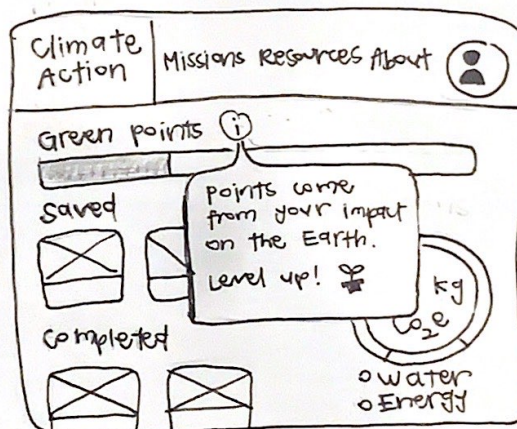 Climate
Action
Missions Resources About
Green points i
Saved
points come
from your impact
on the Earth.
Level up!
kg
CO2e
Completed
Water
Energy